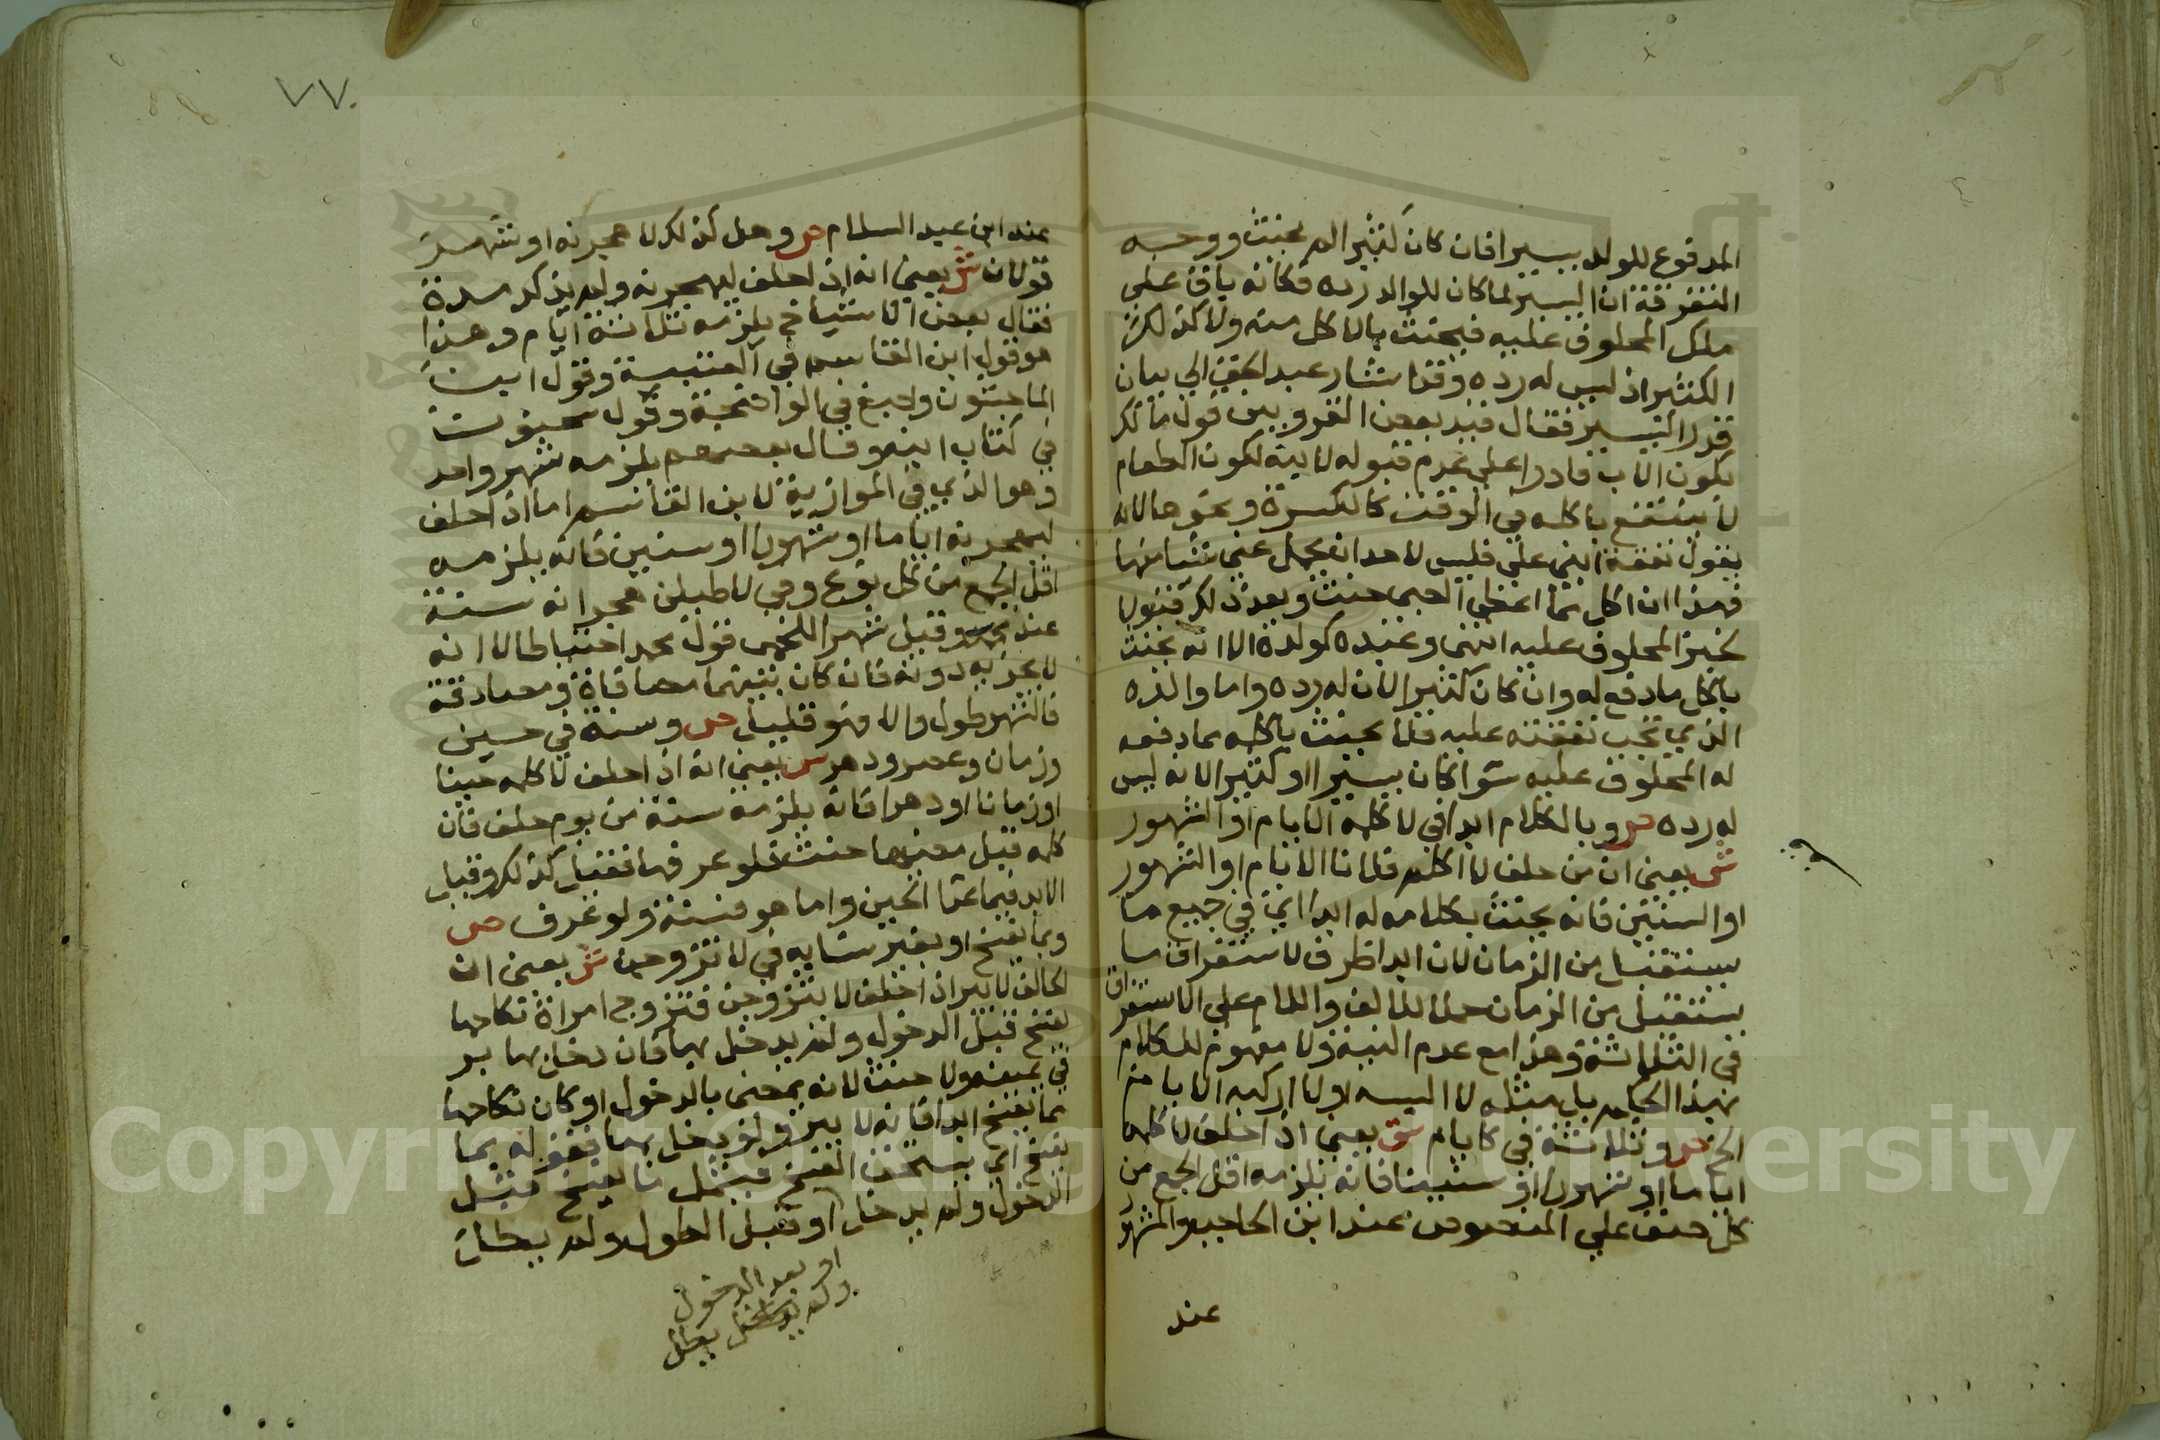 المدفوع للولد يسيرا فان كان كثيرا لم يحنث ووجه
التفرقة ان اليسير لما كان للوالد رده فكانه باق على
ملك المحلوف عليه فيحنث بالاكل منه ولا كذلك
الكثير اذ ليس له رده وقد اشار عبد الحق الي بيان
قدر اليسير فقال قيد بعض القرويين قول مالك
بكون الاب قادرا على عدم قبوله لابنه لكون الطعام
لا ينتفع باكله في الوقت كالكسرة ونحوها لانه
يقول نفقة ابني علي فليس لاحد ان يحمل عني شيا منها
فهذا ان اكل مما اعطي الصبي حنث وبعد ذلك قبولا
لخبز المحلوف عليه انتهى وعبده كولده الا انه يحنث
باكل ما دفع له وان كان كثيرا لان له رده واما والده
الذي تجب نفقته عليه فلا يحنث باكله مما دفعه
له المحلوف عليه سوا كان يسيرا او كثيرا لانه ليس
له رده ص وبالكلام ابدا في لا كلمه الايام او الشهور
ش يعني ان من حلف لا اكلم فلانا الايام او الشهور
او السنين فانه يحنث بكلامه له ابدا اي في جميع ما
يستقبل من الزمان لان ابدا ظرف لاستغراق ما
يستقبل من الزمان حملا للالف واللام على الاستغراق
في الثلاثة وهذا مع عدم النية ولا مفهوم للكلام
بهذا الحكم بل مثله لا البسه او لا اركبه الايام
الخ ص وثلاثة في كايام ش يعني اذا حلف لا كلمه
اياما او شهورا او سنينا فانه يلزمه اقل الجمع من
كل صنف على المنصوص عند ابن الحاجب والمشهور
عند
٧٧
عند ابن عبد السلام ص وهل كذلك لاهجرنه او شهر
قولان ش يعني انه اذا حلف ليهجرنه ولم يذكر مدة
فقال بعض الاشياخ يلزمه ثلاثة ايام وهذا
هو قول ابن القاسم في العتبية وقول ابن
الماجشون واصبغ في الواضحة وقول سحنون
في كتاب ابنه وقال بعضهم يلزمه شهر واحد
وهو الذي في الموازية لابن القاسم اما اذا حلف
ليهجرنه اياما او شهورا او سنين فانه يلزمه
اقل الجمع من كل نوع وفي لاطيلن هجرانه سنة
عند محمد وقيل شهر اللخمي قول محمد احتياطا لا انه
لا يجزيه دونه فان كان بينهما مصافاة ومصادقة
فالشهر طول والا فهو قليل ص وسنة في حين
وزمان وعصر ودهر ش يعني انه اذا حلف لا كلمه حينا
او زمانا او دهرا فانه يلزمه سنة من يوم حلف فان
كلمه قبل مضيها حنث فلو عرفها فقيل كذلك وقيل
الابد فيما عدا الحين واما هو فسنة ولو عرف ص
وبما يفسخ او بغير نسايه في لاتزوجن ش يعني ان
الحالف لا يبر اذا حلف لا يتزوجن فتزوج امراة نكاحها
يفسخ قبل الدخول ولم يدخل بها فان دخل بها بر
في يمينه ولا حنث لانه يمضي بالدخول او كان نكاحها
مما يفسخ ابدا فانه لا يبر ولو دخل بها فقوله بما
يفسخ اي يستحق الفسخ فيشمل ما يفسخ قبل
الدخول ولم يدخل او قبل الطول ولم يطل
او بعد الدخول
ولم يدخل يطل